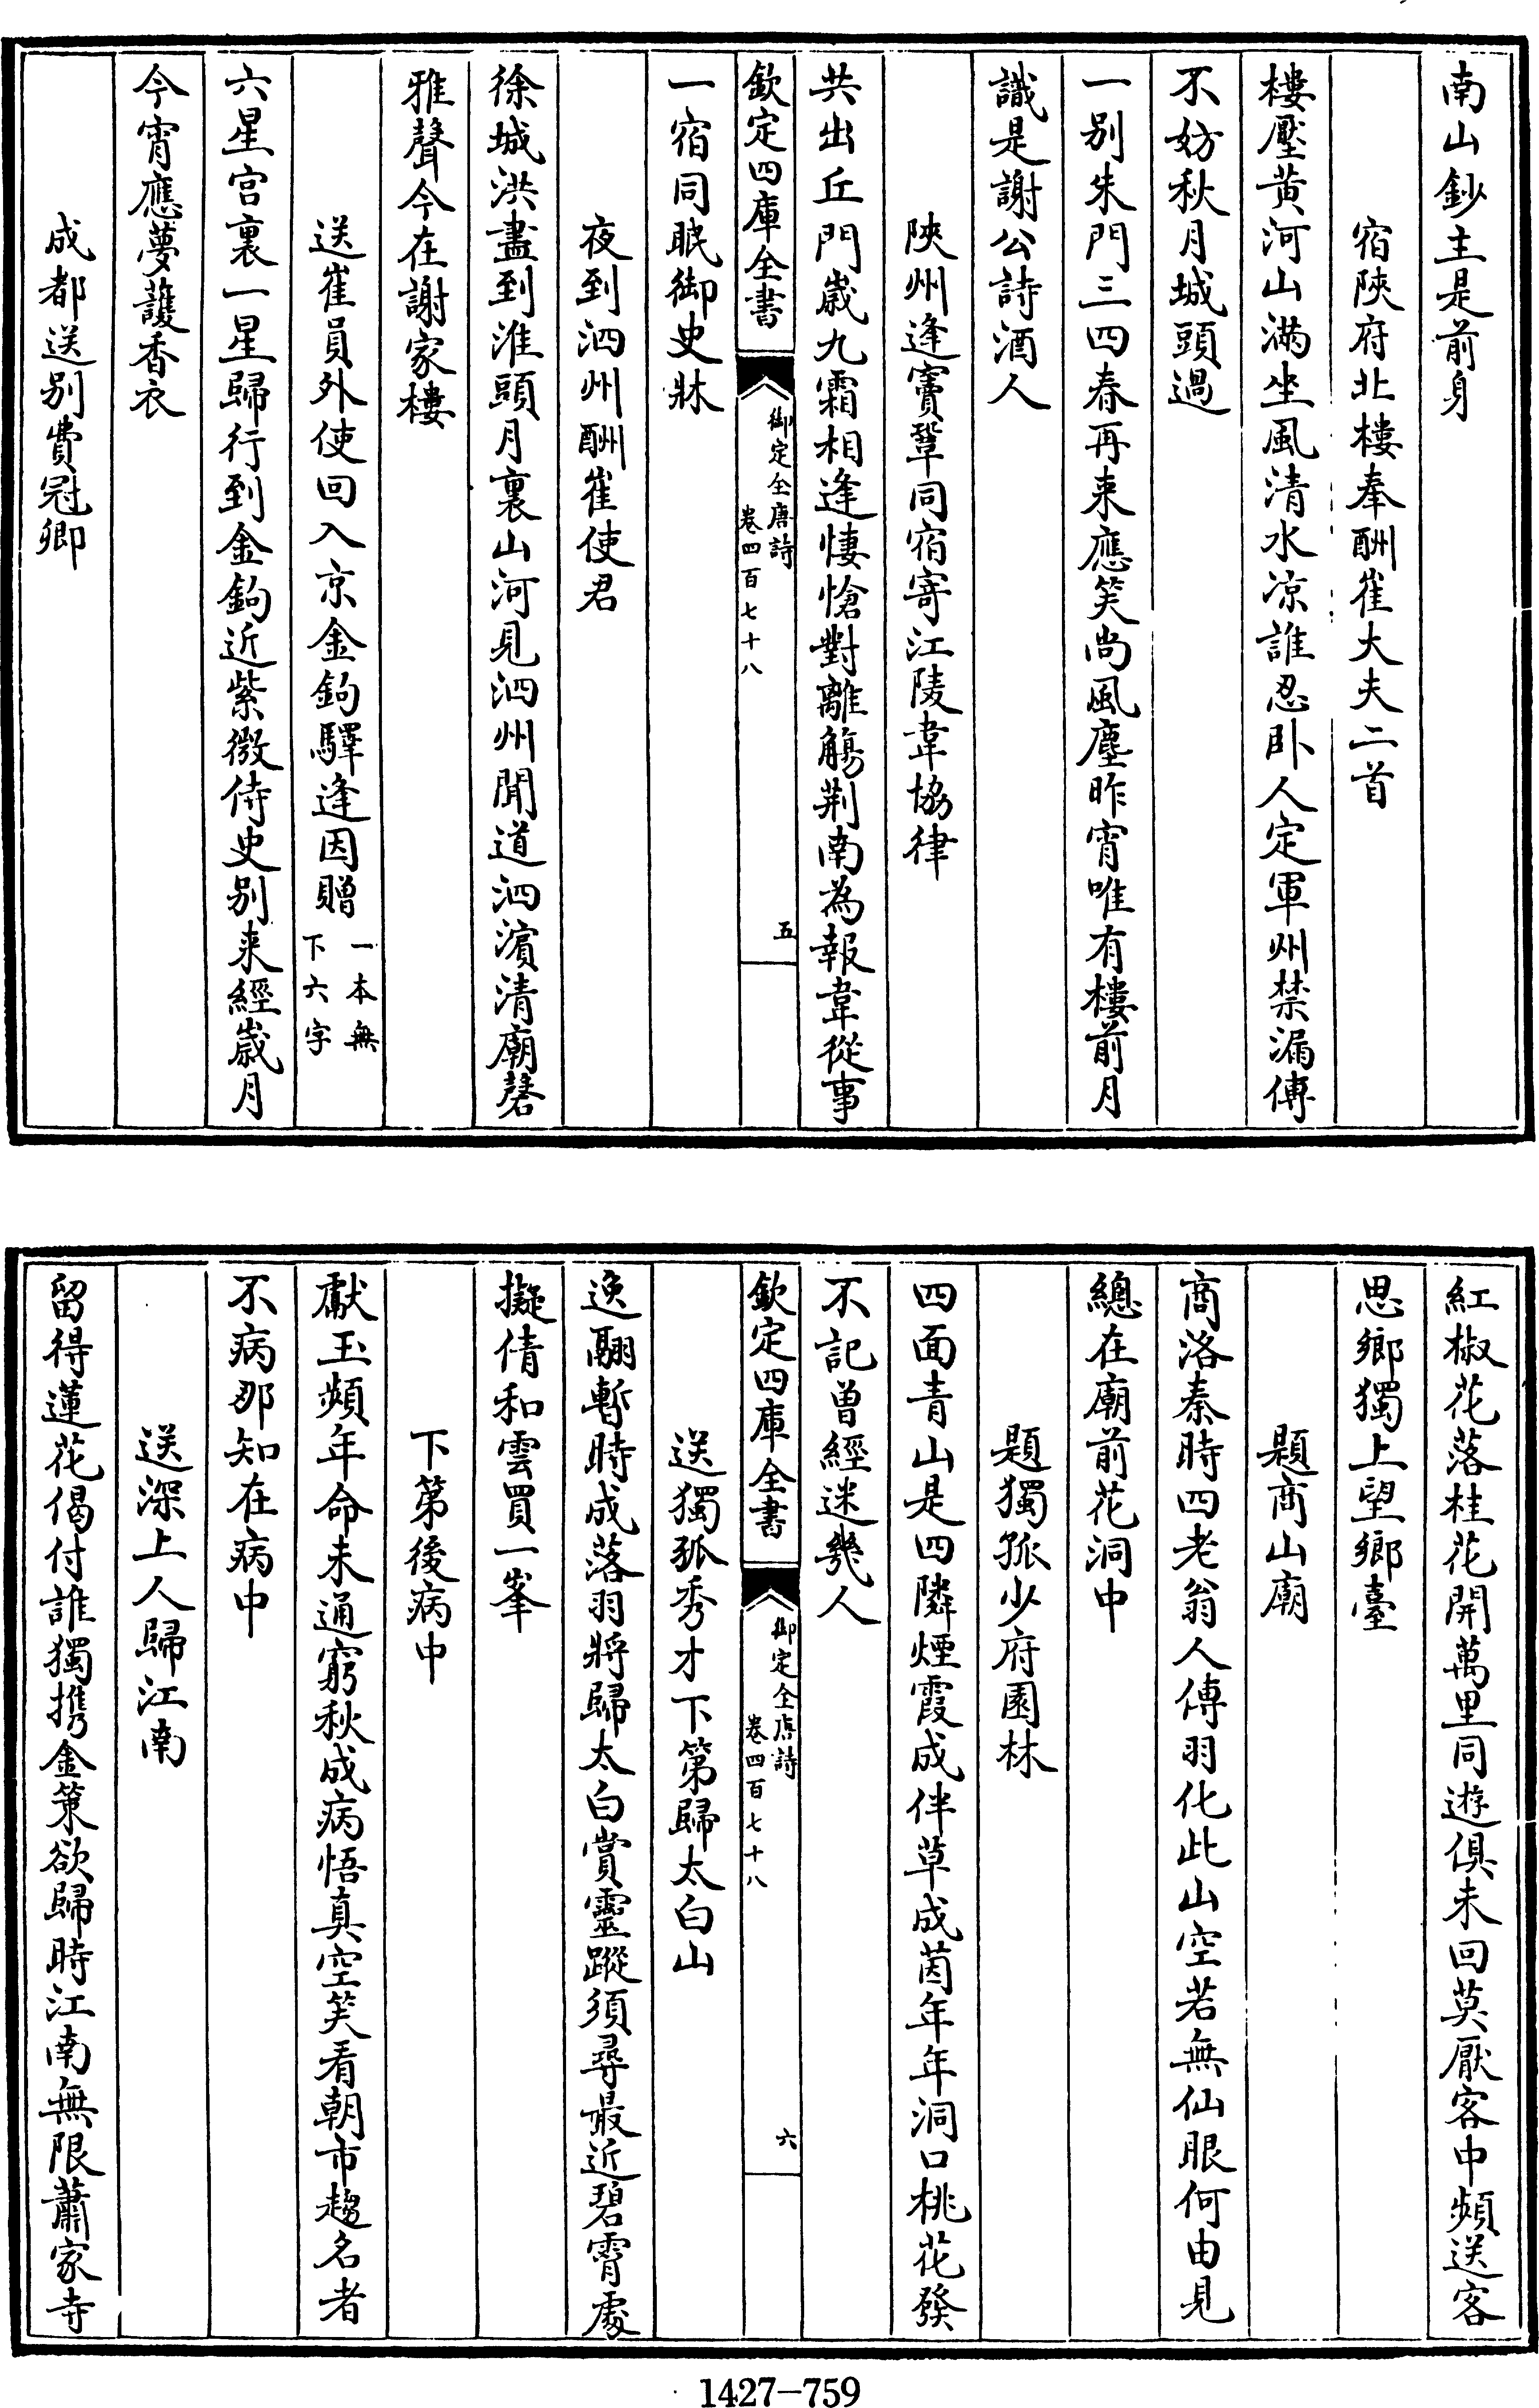 南山鈔主是前身
宿陜府北樓奉酬崔大夫二首
樓壓黃河山滿坐風清水凉誰忍卧人定軍州禁漏傳
不妨秋月城頭過
一别朱門三四春再來應笑尚風塵昨宵唯有樓前月
識是謝公詩酒人
陜州逢竇鞏同宿寄江陵韋協律
共出丘門歲九霜相逢悽愴對離觴荆南為報韋從事
欽定四庫全書
御定全唐詩
卷四百七十八
五
一宿同眠御史牀
夜到泗州酬崔使君
徐城洪盡到淮頭月裏山河見泗州聞道泗濵清廟磬
雅聲今在謝家樓
送崔員外使回入京金鉤驛逢因贈
一本無
下六字
六星宫裏一星歸行到金鉤近紫微侍史别來經歲月
今宵應夢護香衣
成都送别費冠卿
紅椒花落桂花開萬里同遊俱未回莫厭客中頻送客
思鄉獨上望鄉臺
題商山廟
商洛秦時四老翁人傳羽化此山空若無仙眼何由見
總在廟前花洞中
題獨孤少府園林
四面青山是四隣煙霞成伴草成茵年年洞口桃花發
不記曾經迷幾人
欽定四庫全書
御定全唐詩
卷四百七十八
六
送獨孤秀才下第歸太白山
逸翮暫時成落羽將歸太白賞靈蹤須尋最近碧霄處
擬倩和雲買一峯
下第後病中
獻玉頻年命未通窮秋成病悟真空笑看朝市趨名者
不病那知在病中
送深上人歸江南
留得蓮花偈付誰獨攜金策欲歸時江南無限蕭家寺
1427-759